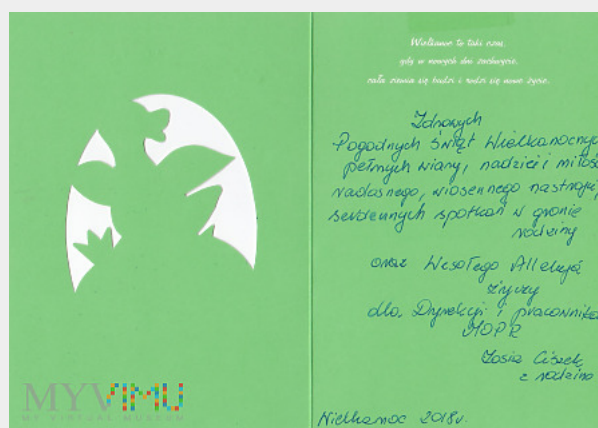 Wielkanoc to taki czas,
gdy w nowych dni zachwycie,
cała ziemia się budzi i rodzi się nowe życie.
Zdrowych
Pogodnych Świąt Wielkanocny
pełnych wiary, nadziei i miłoś
radosnego, wiosennego nastroju,
serdecznych spotkań w gronie
rodziny
oraz Wesołego Alleluja
życzy
dla Dyrekcji i pracownikó
MOPR
Zosia Ciszek
z rodziną
Wielkanoc 2018r.
MYVIMU
MY VIRTUAL MUSEUM